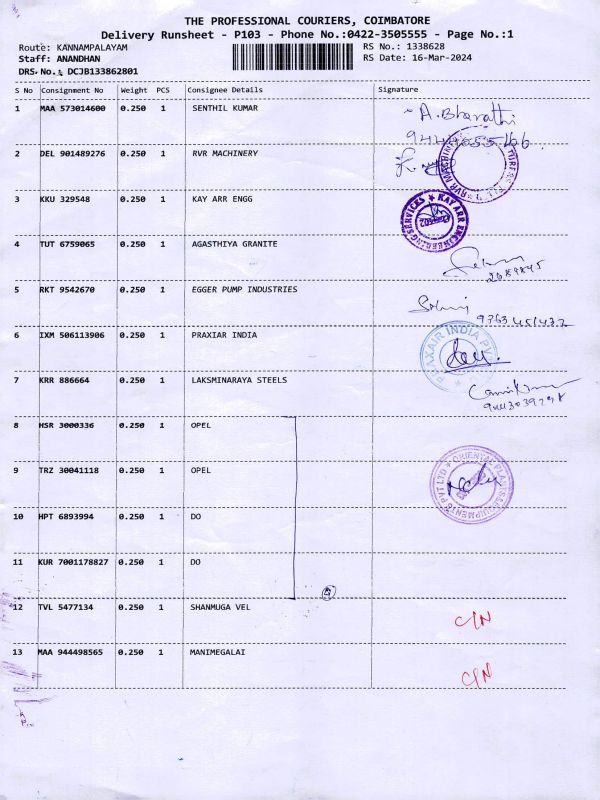 THE PROFESSIONAL COURIERS, COIMBATORE
Delivery Runsheet - P103 - Phone No.:0422-3505555 - Page No.:1
Route: KANNAMPALAYAM RS No.: 1338628
Staff: ANANDHAN RS Date: 16-Mar-2024
DRS No.: DCJB133862801
S No Consignment No Weight PCS Consignee Details Signature
1 MAA 573014600 0.250 1 SENTHIL KUMAR A. Bharathi
2 DEL 901489276 0.250 1 RVR MACHINERY
3 KKU 329548 0.250 1 KAY ARR ENGG KAY ARR ENGINEERING SERVICES
4 TUT 6759065 0.250 1 AGASTHIYA GRANITE
5 RKT 9542670 0.250 1 EGGER PUMP INDUSTRIES
6 IXM 506113906 0.250 1 PRAXIAR INDIA PRAXAIR INDIA PVT
7 KRR 886664 0.250 1 LAKSMINARAYA STEELS
8 HSR 3000336 0.250 1 OPEL
9 TRZ 30041118 0.250 1 OPEL ORIENTAL PLANTS & EQUIPMENTS PVT LTD
10 HPT 6893994 0.250 1 DO
11 KUR 7001178827 0.250 1 DO
4
12 TVL 5477134 0.250 1 SHANMUGA VEL C/N
13 MAA 944498565 0.250 1 MANIMEGALAI C/N